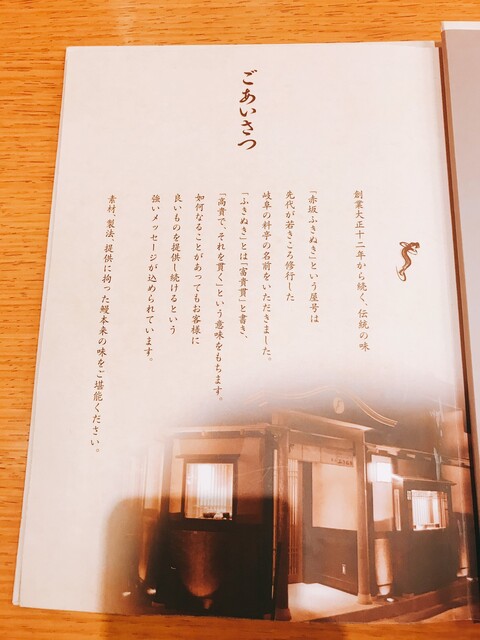 ごあいさつ
創業大正十二年から続く、伝統の味
「赤坂ふきぬき」という屋号は
先代が若きころ修行した
岐阜の料亭の名前をいただきました。
「ふきぬき」とは「富貴貫」と書き、
「高貴で、それを貫く」という意味をもちます。
如何なることがあってもお客様に
良いものを提供し続けるという
強いメッセージが込められています。
素材、製法、提供に拘った鰻本来の味をご堪能ください。